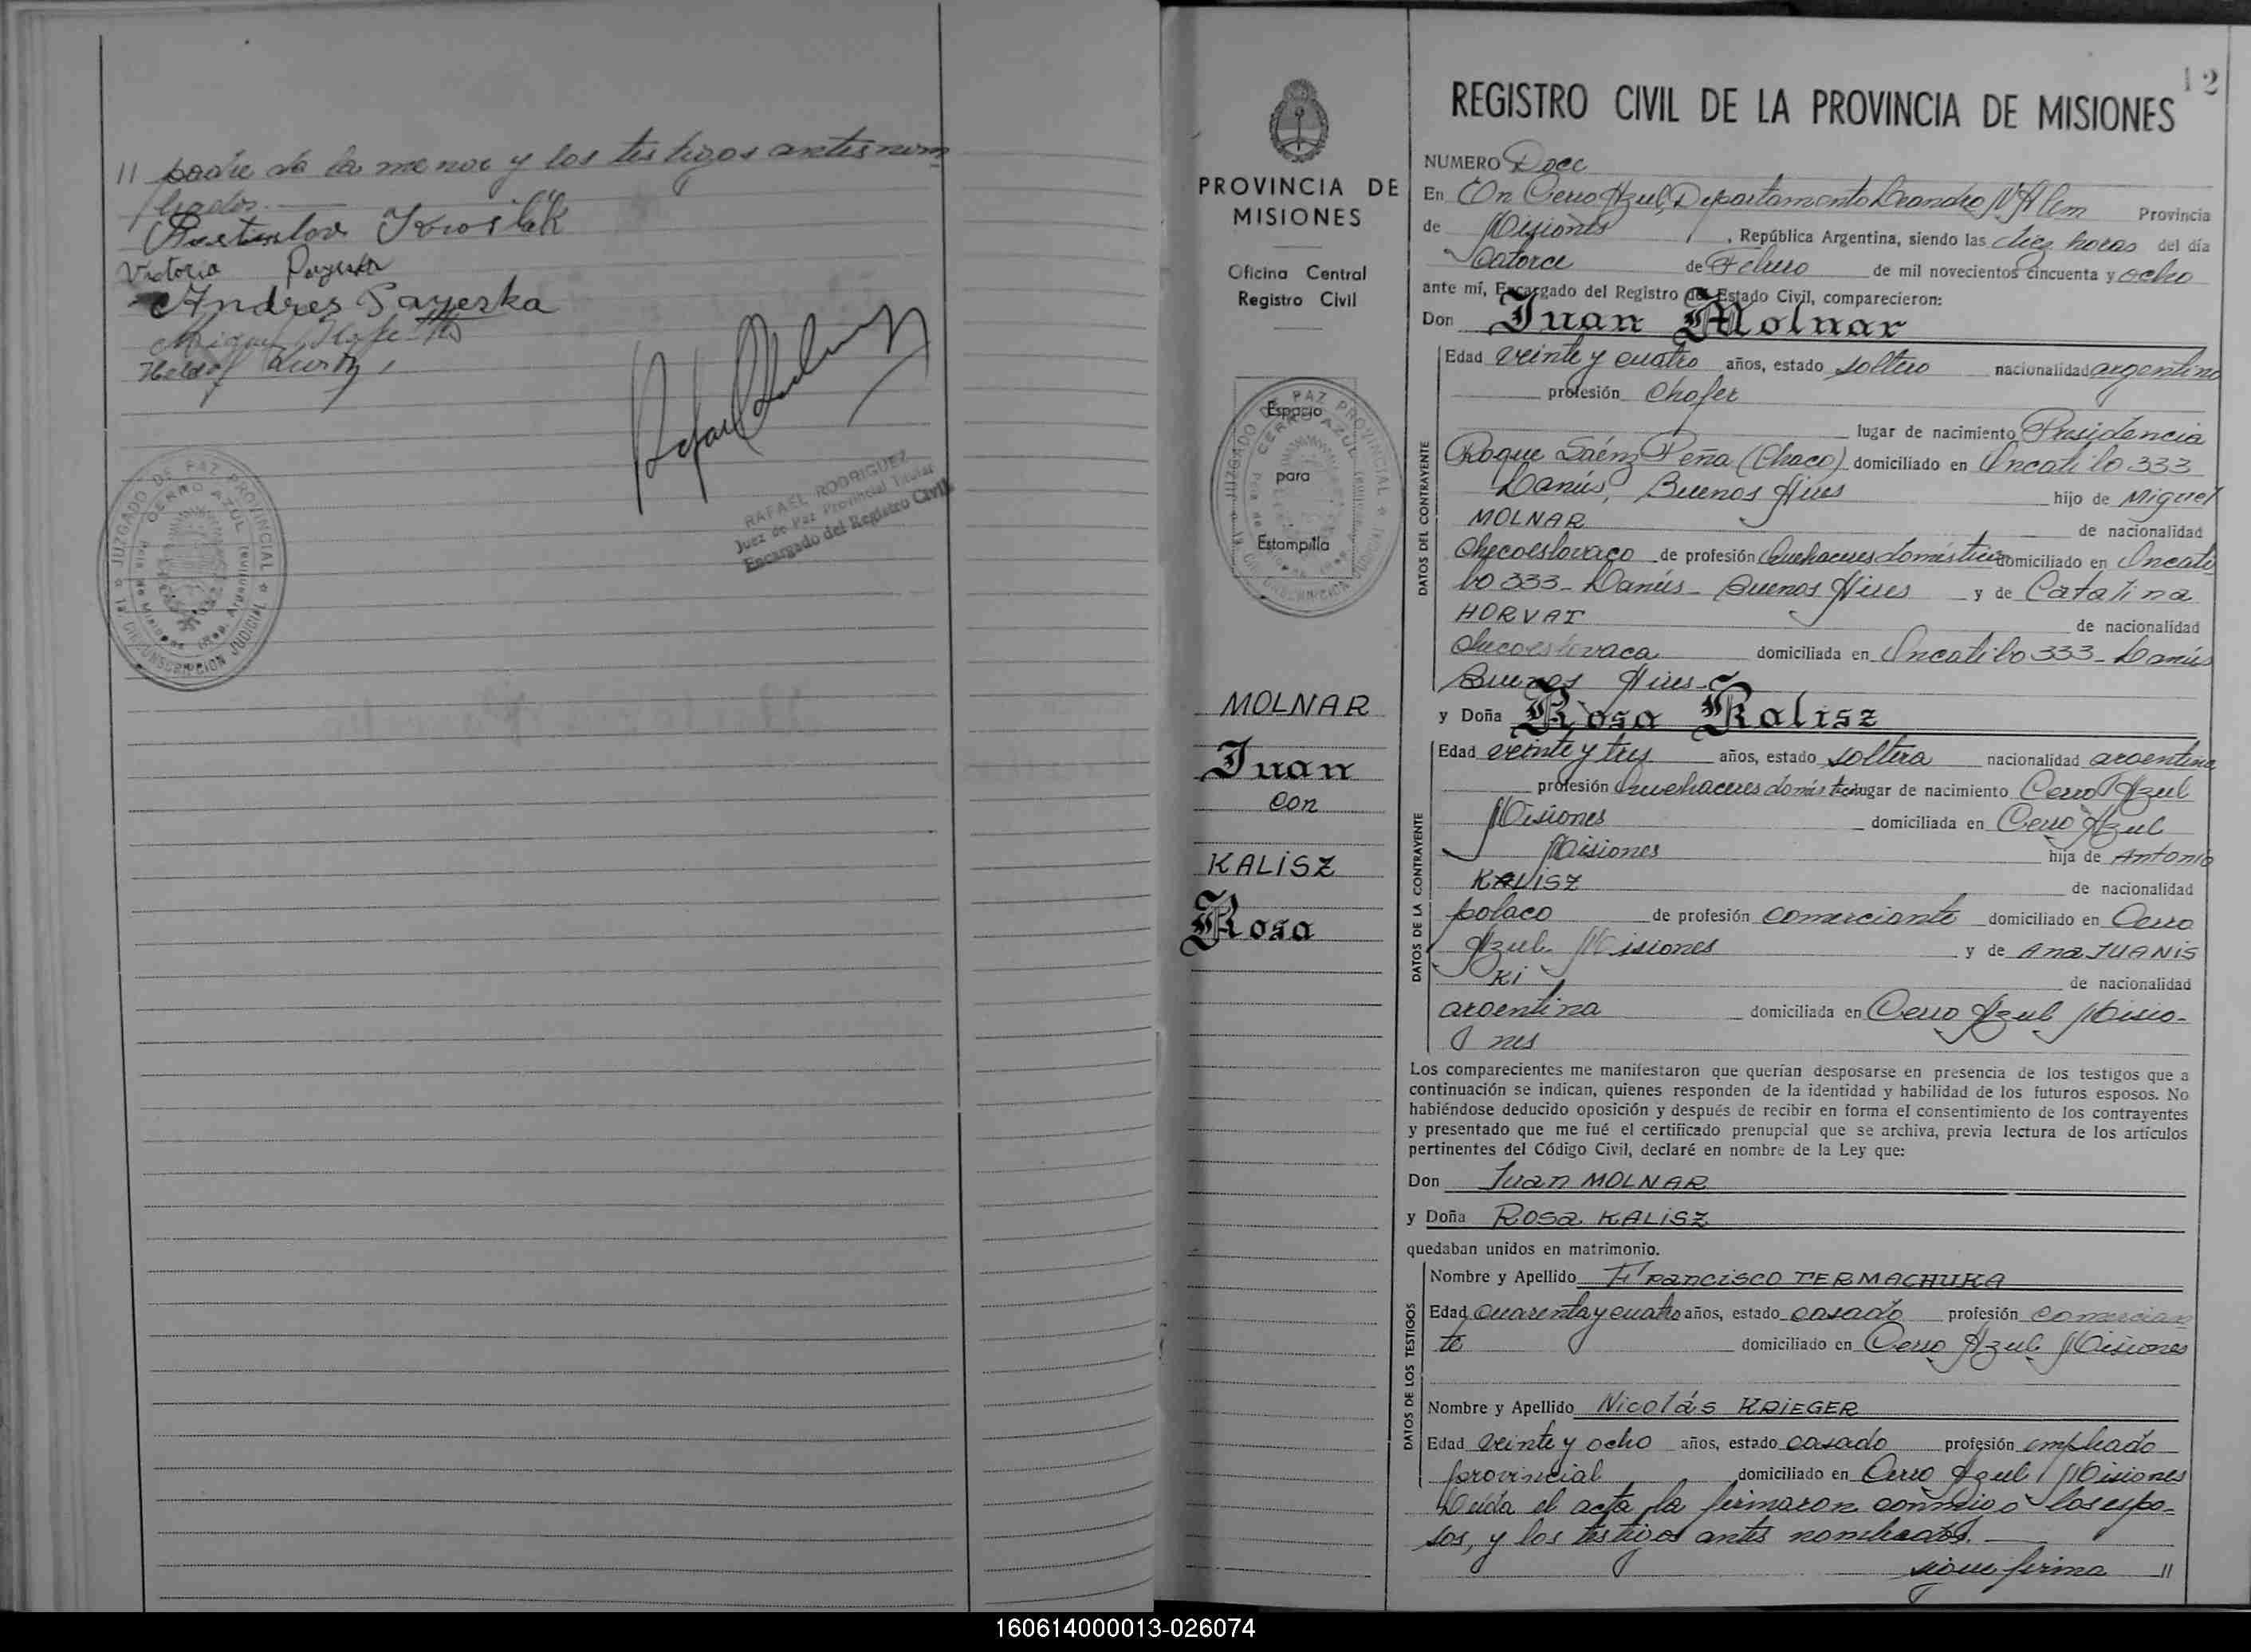 // padre de la menor y los testigos antes nom
brados.
Victoria Payeska
Andres Payeska
RAFAEL RODRIGUEZ
Juez de Paz Provincial Titular
Encargado del Registro Civil
JUZGADO DE PAZ PROVINCIAL
CERRO AZUL
12
PROVINCIA DE
MISIONES
Oficina Central
Registro Civil
Espacio
para
Estampilla
JUZGADO DE PAZ PROVINCIAL
CERRO AZUL
MOLNAR
Juan
con
KALISZ
Rosa
REGISTRO CIVIL DE LA PROVINCIA DE MISIONES
NUMERO Doce
En En Cerro Azul, Departamento Leandro N. Alem Provincia
de Misiones, República Argentina, siendo las diez horas del día
Catorce de Febrero de mil novecientos cincuenta y ocho
ante mí, Encargado del Registro del Estado Civil, comparecieron:
Don Juan Molnar
DATOS DEL CONTRAYENTE
Edad veinte y cuatro años, estado soltero nacionalidad argentino
profesión Chofer
lugar de nacimiento Presidencia
Roque Saénz Peña (Chaco) domiciliado en 333
Lanús, Buenos Aires hijo de Miguel
MOLNAR de nacionalidad
Checoeslovaco de profesión Quehaceres domésticos domiciliado en
333 - Lanús - Buenos Aires y de Catalina
HORVAT de nacionalidad
Checoeslovaca domiciliada en 333 - Lanús
Buenos Aires.
y Doña Rosa Kalisz
DATOS DE LA CONTRAYENTE
Edad veinte y tres años, estado soltera nacionalidad argentina
profesión Quehaceres domésticos lugar de nacimiento Cerro Azul
Misiones domiciliada en Cerro Azul
Misiones hija de Antonio
KALISZ de nacionalidad
polaco de profesión comerciante domiciliado en Cerro
Azul Misiones y de Ana JUANIS
Ki de nacionalidad
argentina domiciliada en Cerro Azul Misio-
nes
Los comparecientes me manifestaron que querían desposarse en presencia de los testigos que a
continuación se indican, quienes responden de la identidad y habilidad de los futuros esposos. No
habiéndose deducido oposición y después de recibir en forma el consentimiento de los contrayentes
y presentado que me fué el certificado prenupcial que se archiva, previa lectura de los artículos
pertinentes del Código Civil, declaré en nombre de la Ley que:
Don Juan MOLNAR
y Doña Rosa KALISZ
quedaban unidos en matrimonio.
DATOS DE LOS TESTIGOS
Nombre y Apellido Francisco TERMACHUKA
Edad cuarenta y cuatro años, estado casado profesión comercian
te domiciliado en Cerro Azul Misiones
Nombre y Apellido Nicolás KRIEGER
Edad veinte y ocho años, estado casado profesión empleado
provincial domiciliado en Cerro Azul Misiones
Leída el acta la firmaron conmigo los espo-
sos, y los testigos antes nombrados.
sigue firma //
160614000013-026074